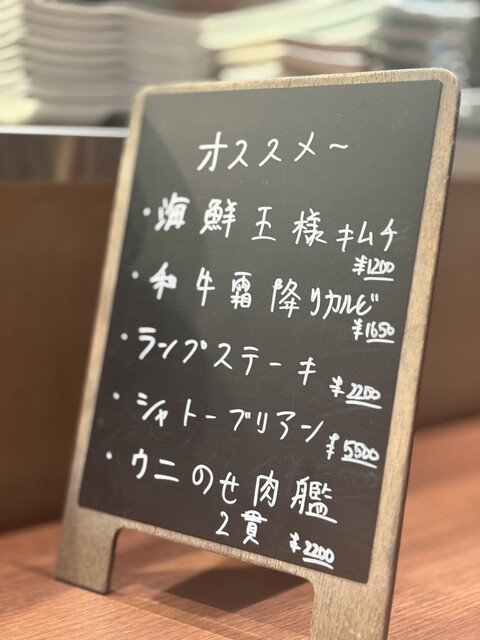 オススメ〜
・海鮮王様キムチ
¥1200
・和牛霜降りカルビ
¥1650
・ランプステーキ
¥2200
・シャトーブリアン
¥5500
・ウニのせ肉艦
2貫 ¥2200